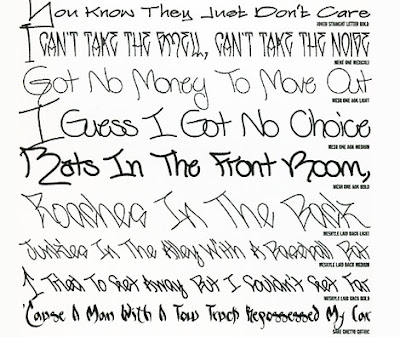 You Know They Just Don't Care
JOKER STRAIGHT LETTER BOLD
I CAN'T TAKE THE SMELL, CAN'T TAKE THE NOISE
MEKE ONE
Got No Money To Move Out
MESH ONE AOK LIGHT
I Guess I Got No Choice
MESH ONE AOK MEDIUM
Rats In The Front Room,
MESH ONE AOK BOLD
Roaches In The Back
MESKYLE LAID BACK LIGHT
Junkies In The Alley With A Baseball Bat
MESKYLE LAID BACK MEDIUM
I Tried To Get Away But I Couldn't Get Far
MESKYLE LAID BACK BOLD
'Cause A Man With A Tow Truck Repossessed My Car
SABE GHETTO GOTHIC